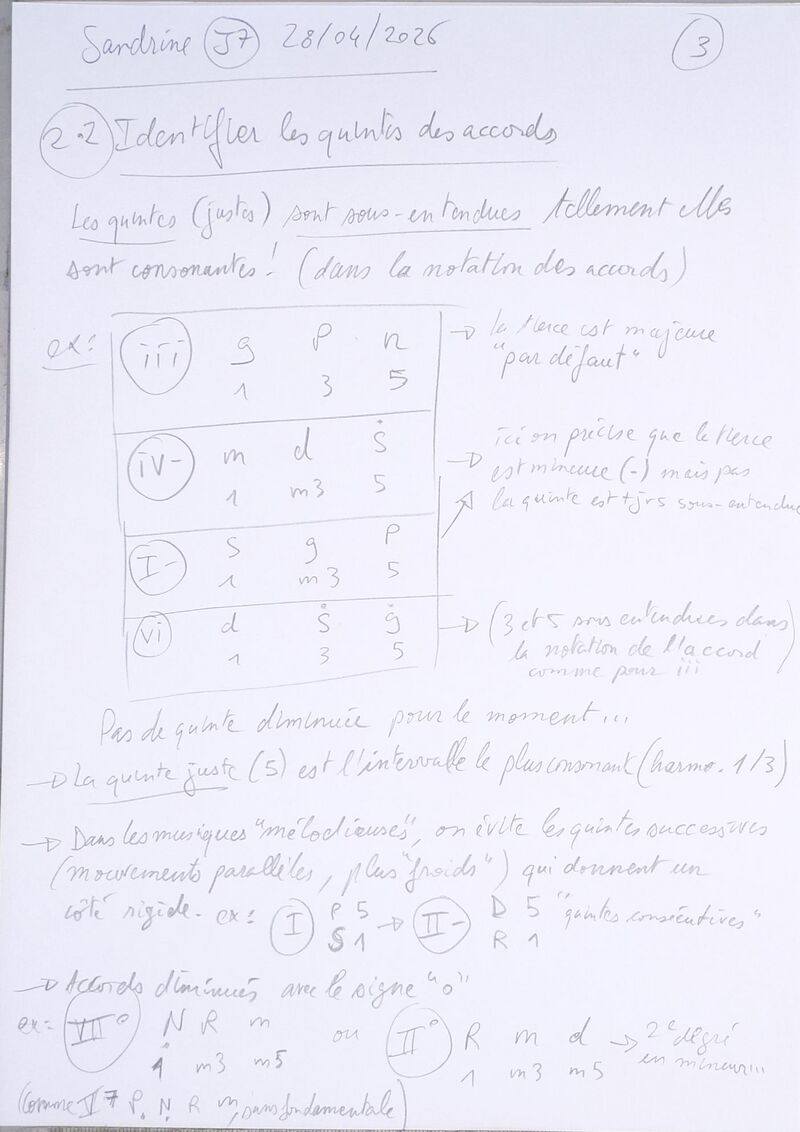 Sandrine J7 28/04/2026 3
2.2 Identifier les quintes des accords
Les quintes (justes) sont sous-entendues tellement elles
sont consonantes! (dans la notation des accords)
ex: iii g p n → la tierce est majeure
1 3 5 "par défaut"
iv- m d ṡ → ici on précise que la tierce
1 m3 5 est mineure (-) mais pas
la quinte est tjrs sous-entendue
I- s g p
1 m3 5
vi d ṡ g̊ → (3 et 5 sous entendues dans
1 3 5 la notation de l'accord
comme pour iii)
Pas de quinte diminuée pour le moment...
→ La quinte juste (5) est l'intervalle le plus consonant (harmo. 1/3)
→ Dans les musiques "mélodieuses", on évite les quintes successives
(mouvements parallèles, plus "froids") qui donnent un
côté rigide. ex: I P 5 → II- D 5 "quintes consécutives"
S 1 R 1
→ Accords diminués avec le signe "o"
ex: VII° N R m ou II° R m d → 2e degré
1 m3 m5 1 m3 m5 en mineur...
(comme V7 P. N. R m, sans fondamentale)